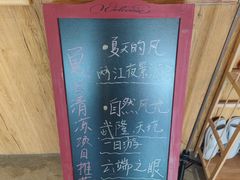 Welcome
夏日清凉项目推荐
·夏天的风
两江夜景游
·自然风光
武隆天坑
一日游
云端之眼